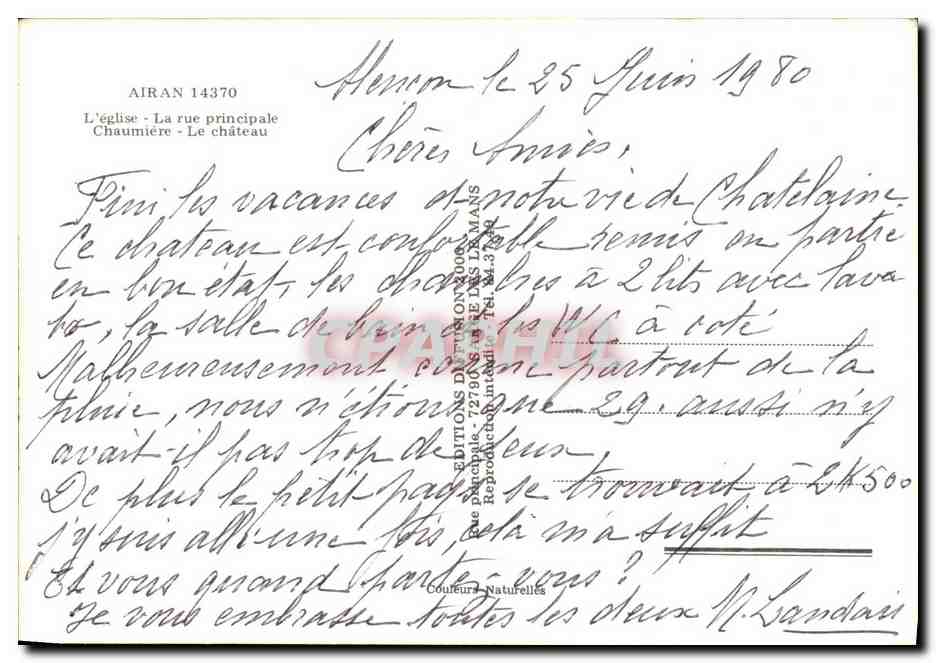 AIRAN 14370
L'église - La rue principale
Chaumière - Le château
Alencon le 25 Juin 1980
Chères Amies,
Fini les vacances et notre vie de Chatelaine.
Ce chateau est confortable remis en partie
en bon état, les chambres à 2 lits avec lava
bo, la salle de bain et les W C à coté
Malheureusement comme partout de la
pluie, nous n'étions que 29. aussi n'y
avait-il pas trop de deux,
De plus le petit pays se trouvait à 2K500
j'y suis allé une fois, celà m'a suffit
Et vous quand partez-vous ?
Je vous embrasse toutes les deux M. Landais
EDITIONS DIFFUSION 2000
Rue principale - 72790 SARGÉ LES LE MANS
Reproduction interdite - Tél. 84.37.49
Couleurs Naturelles
CPAPHIL